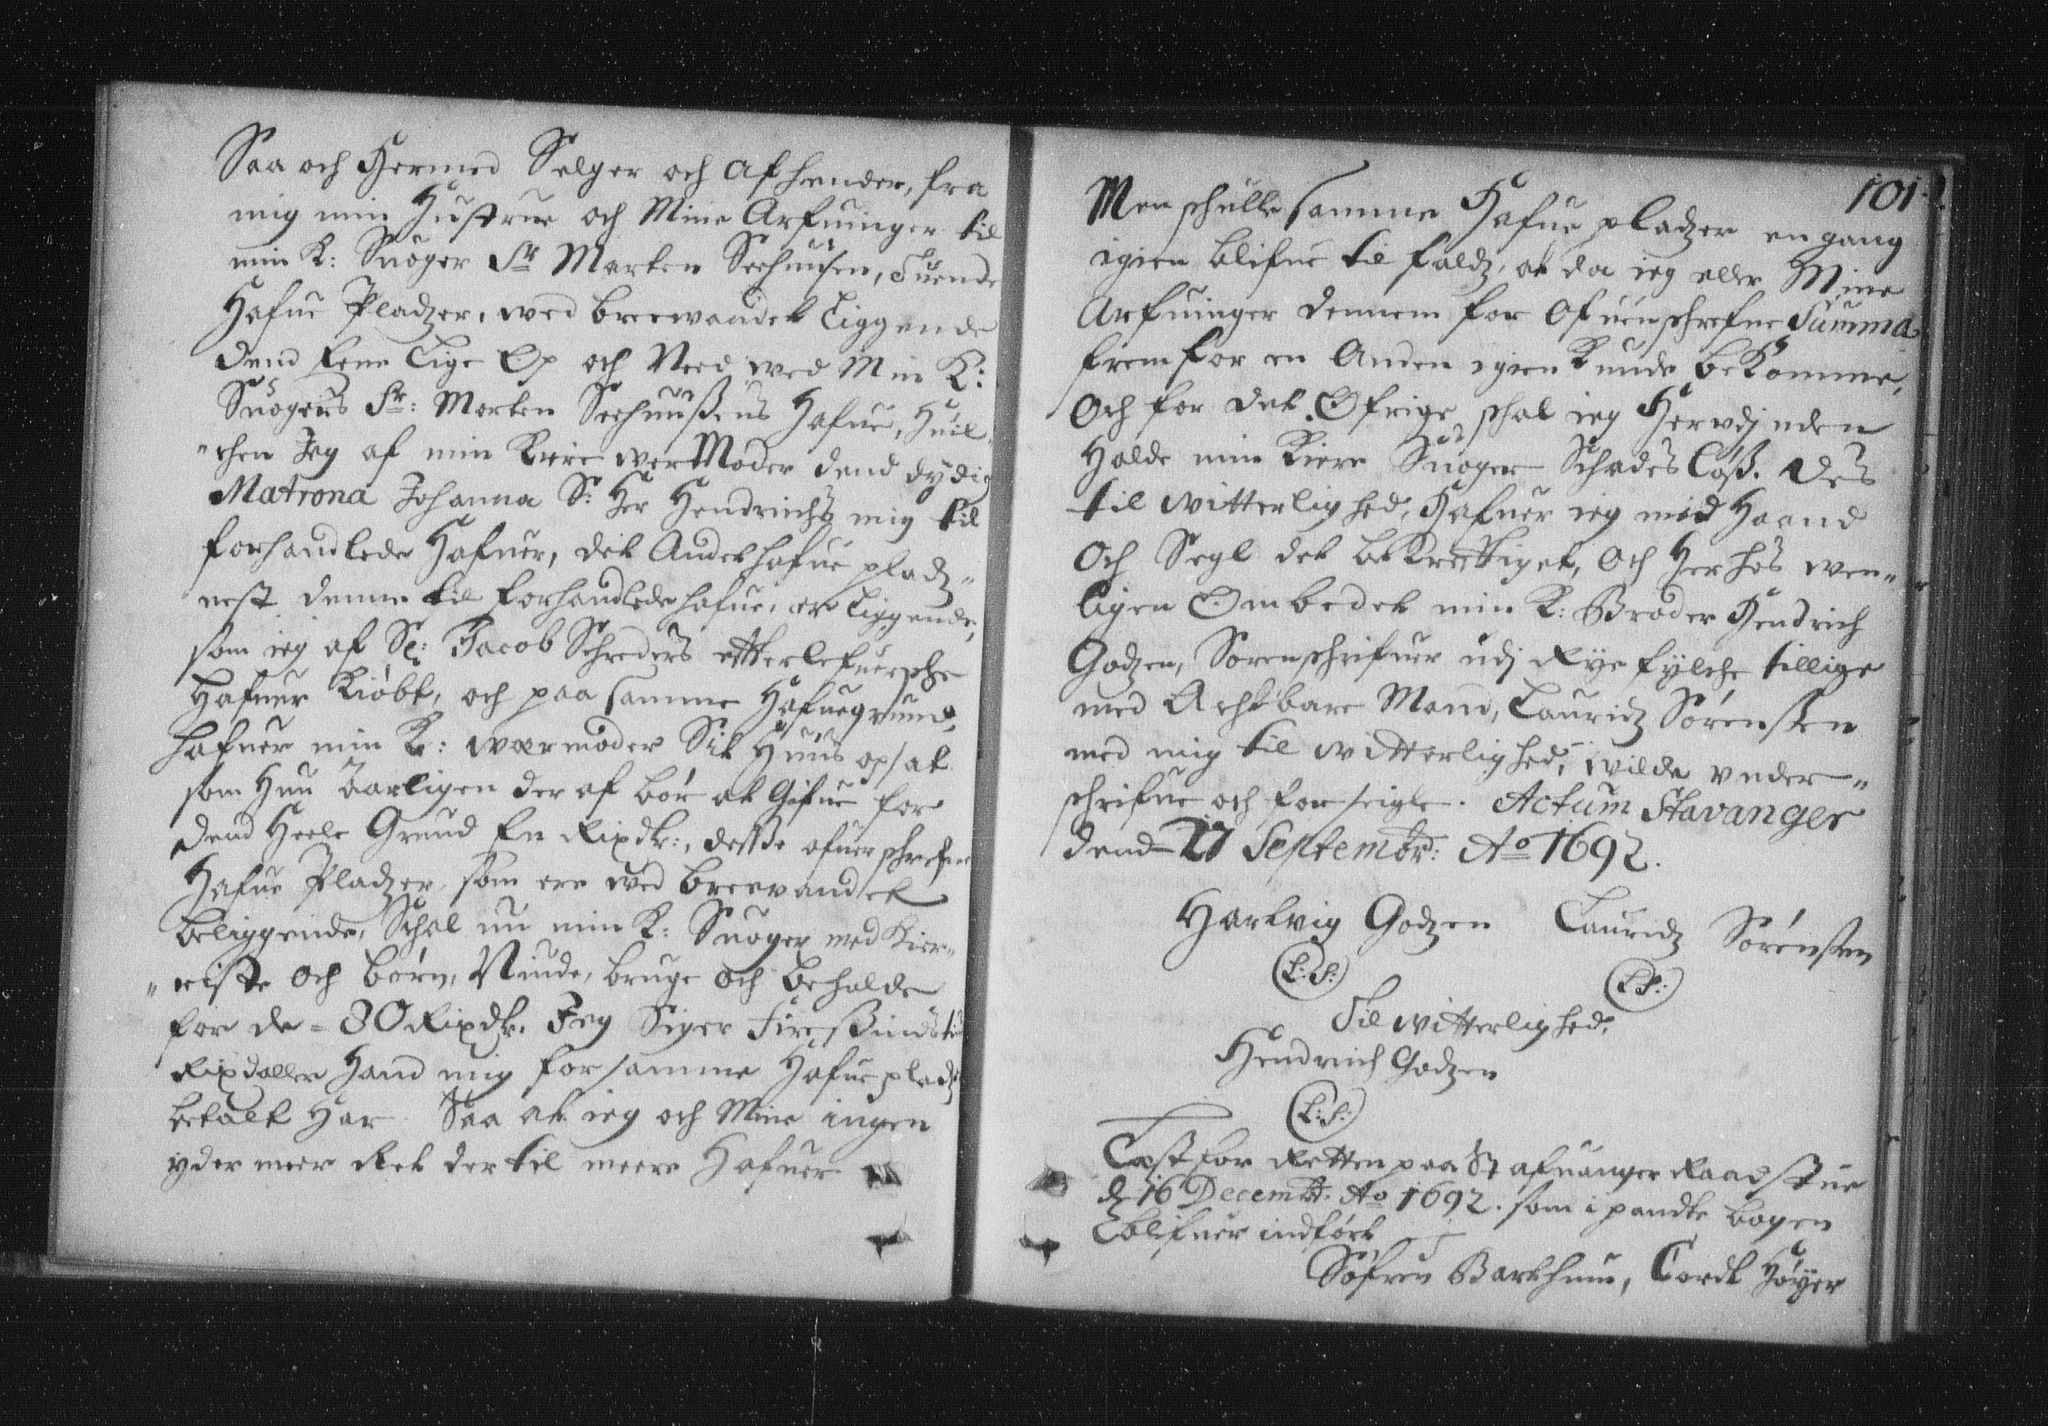 Saa och Hermed Selger och afhender, fra
mig min Hustrue och Mine Arfuinger til
min K: Suoger Sr Marten Seehuusen, Tuende
Hafue Pladzer, wed breewandet Liggende
Dend Eene Lige Op och Need wed Min K:
Suogers Sr: Morten Seehuusens Hafue, Huil-
chen Jeg af min Kiere wer Moder dend dydig
Matrona Johanna Sl: Her Hendrichs mig til
forhandlede Hafuer, det Andet hafue pladz
nest denne til forhandlede hafue, er Liggende,
som ieg af Sl: Jacob Schreders effterlefuersche
Hafuer Kiöbt, och paa samme Hafuegrund,
hafuer min K: wærmoder Sit Huus opsat
som Hun Aarligen der af bör at Gifue for
Dend Heele Grund En Rixdlr:, desse ofuerschrefne
Hafue Pladzer, som ere wed breevandet
beliggende, Schal nu min K: Suoger med Kier-
"eiste och börn, Niude, bruge och beholde
for de = 80 Rixdlr. Jeg Siger Firesindstiu
Rixdaller Hand mig for samme Hafue pladz
betalt Har. Saa at ieg och Mine ingen
yder meer Ret der til meere Hafuer
101.
Men schulle samme Hafue pladzer en gang
igien blifue til fals, at da ieg eller Mine
Arfuinger dennem for Ofuenschrefne Summa
frem for en Anden igien Kunde beKomme,
Och for det Öfrige schal ieg Herudjnden
Holde min Kiere Suoger Schadeslöss. Des
til witterlighed, Hafuer ieg med Haand
Och Segl det bekrefftiget, Och Herhos wen-
ligen Ombedet min K: Broder Hendrich
Godzen, Sorenschrifuer udj Rye fylche tillige
med Achtbare Mand, Lauridz Sörensen
med mig til witterlighed, wilde vnder-
schrifue och forseigle. Actum Stavanger
dend 27 Septembr: Ao 1692.
Hartvig Godzen Lauridz Sörensen
L:S: L:S:
Til witterlighed,
Hendrich Godzen
L:S:
Læst for Retten paa Stafuanger Raadstue
d 16 Decembr: Ao 1692. som i pandte bogen
blifuer indfört
Söfren Barthum, Cordt Höyer